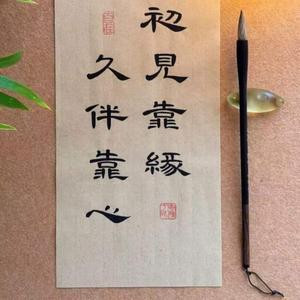 初見靠緣
久伴靠心